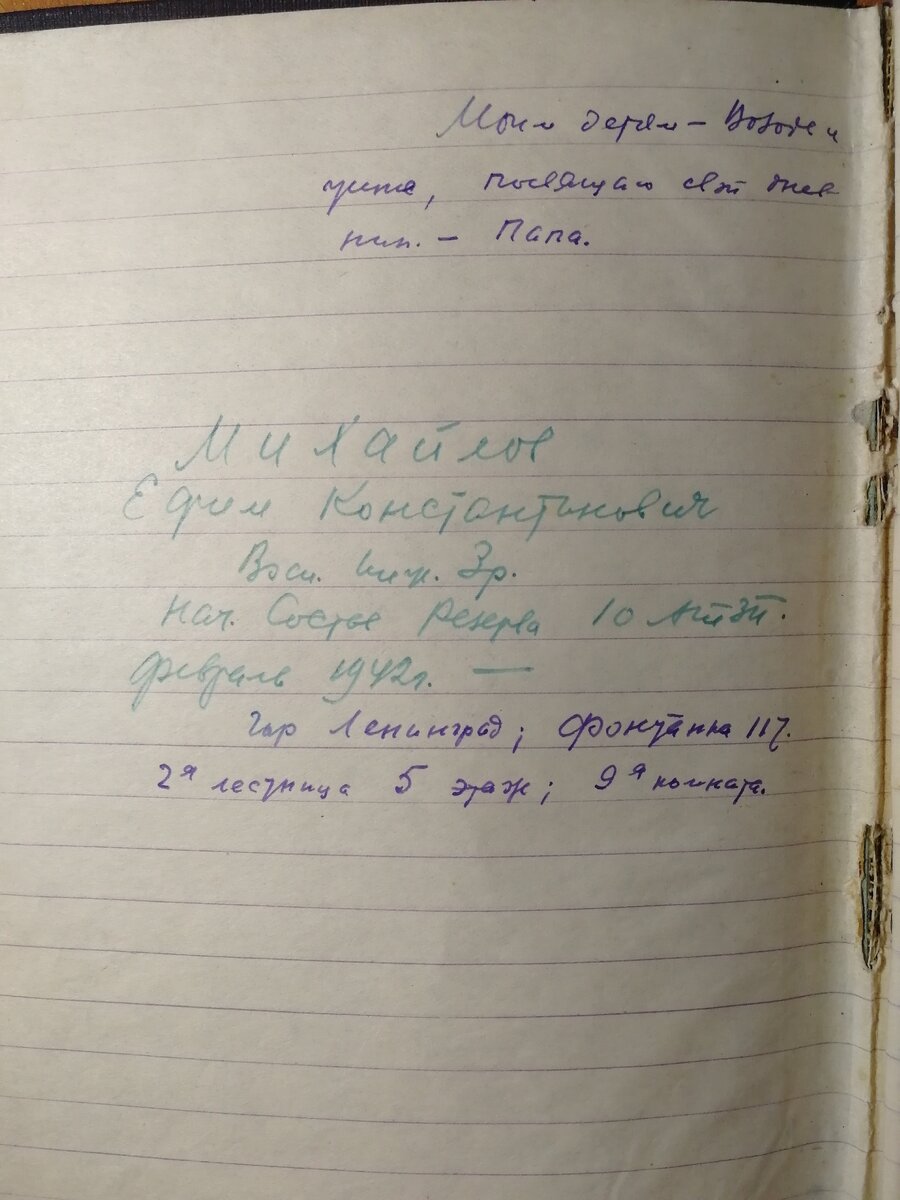 Моим детям – Вовочке и
посвящаю свой днев
ник. – Папа.
Михайлов
Ефим Константинович
Воен. Инж. 3р.
Нач. Состав Резерва 10
февраль 1942г. —
гор Ленинград; Фонтанка 117.
2я лестница 5 этаж; 9я комната.